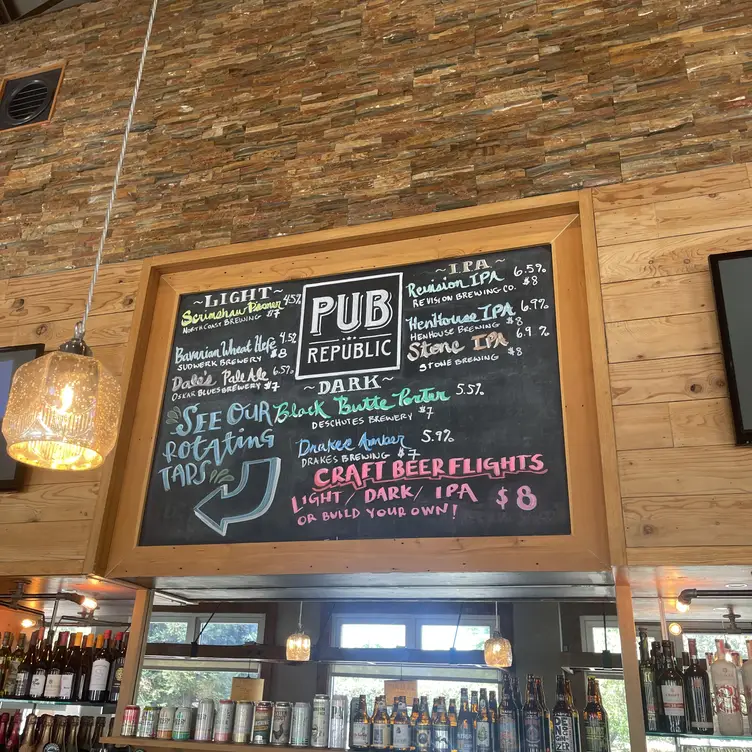 ~LIGHT~
Scrimshaw Pilsner 4.5%
NORTH COAST BREWING $7
Bavarian Wheat Hefe 4.5%
SUDWERK BREWERY $8
Dale's Pale Ale 6.5%
OSKAR BLUES BREWERY $7
SEE OUR
Rotating
TAPS
PUB
REPUBLIC
~DARK~
Black Butte Porter 5.5%
DESCHUTES BREWERY $7
Drakes Amber 5.9%
DRAKES BREWING $7
~IPA~
Revision IPA 6.5%
REVISION BREWING CO. $8
HenHouse IPA 6.9%
HENHOUSE BREWING $8
Stone IPA 6.9%
STONE BREWING $8
CRAFT BEER FLIGHTS
LIGHT/DARK/IPA $8
OR BUILD YOUR OWN!